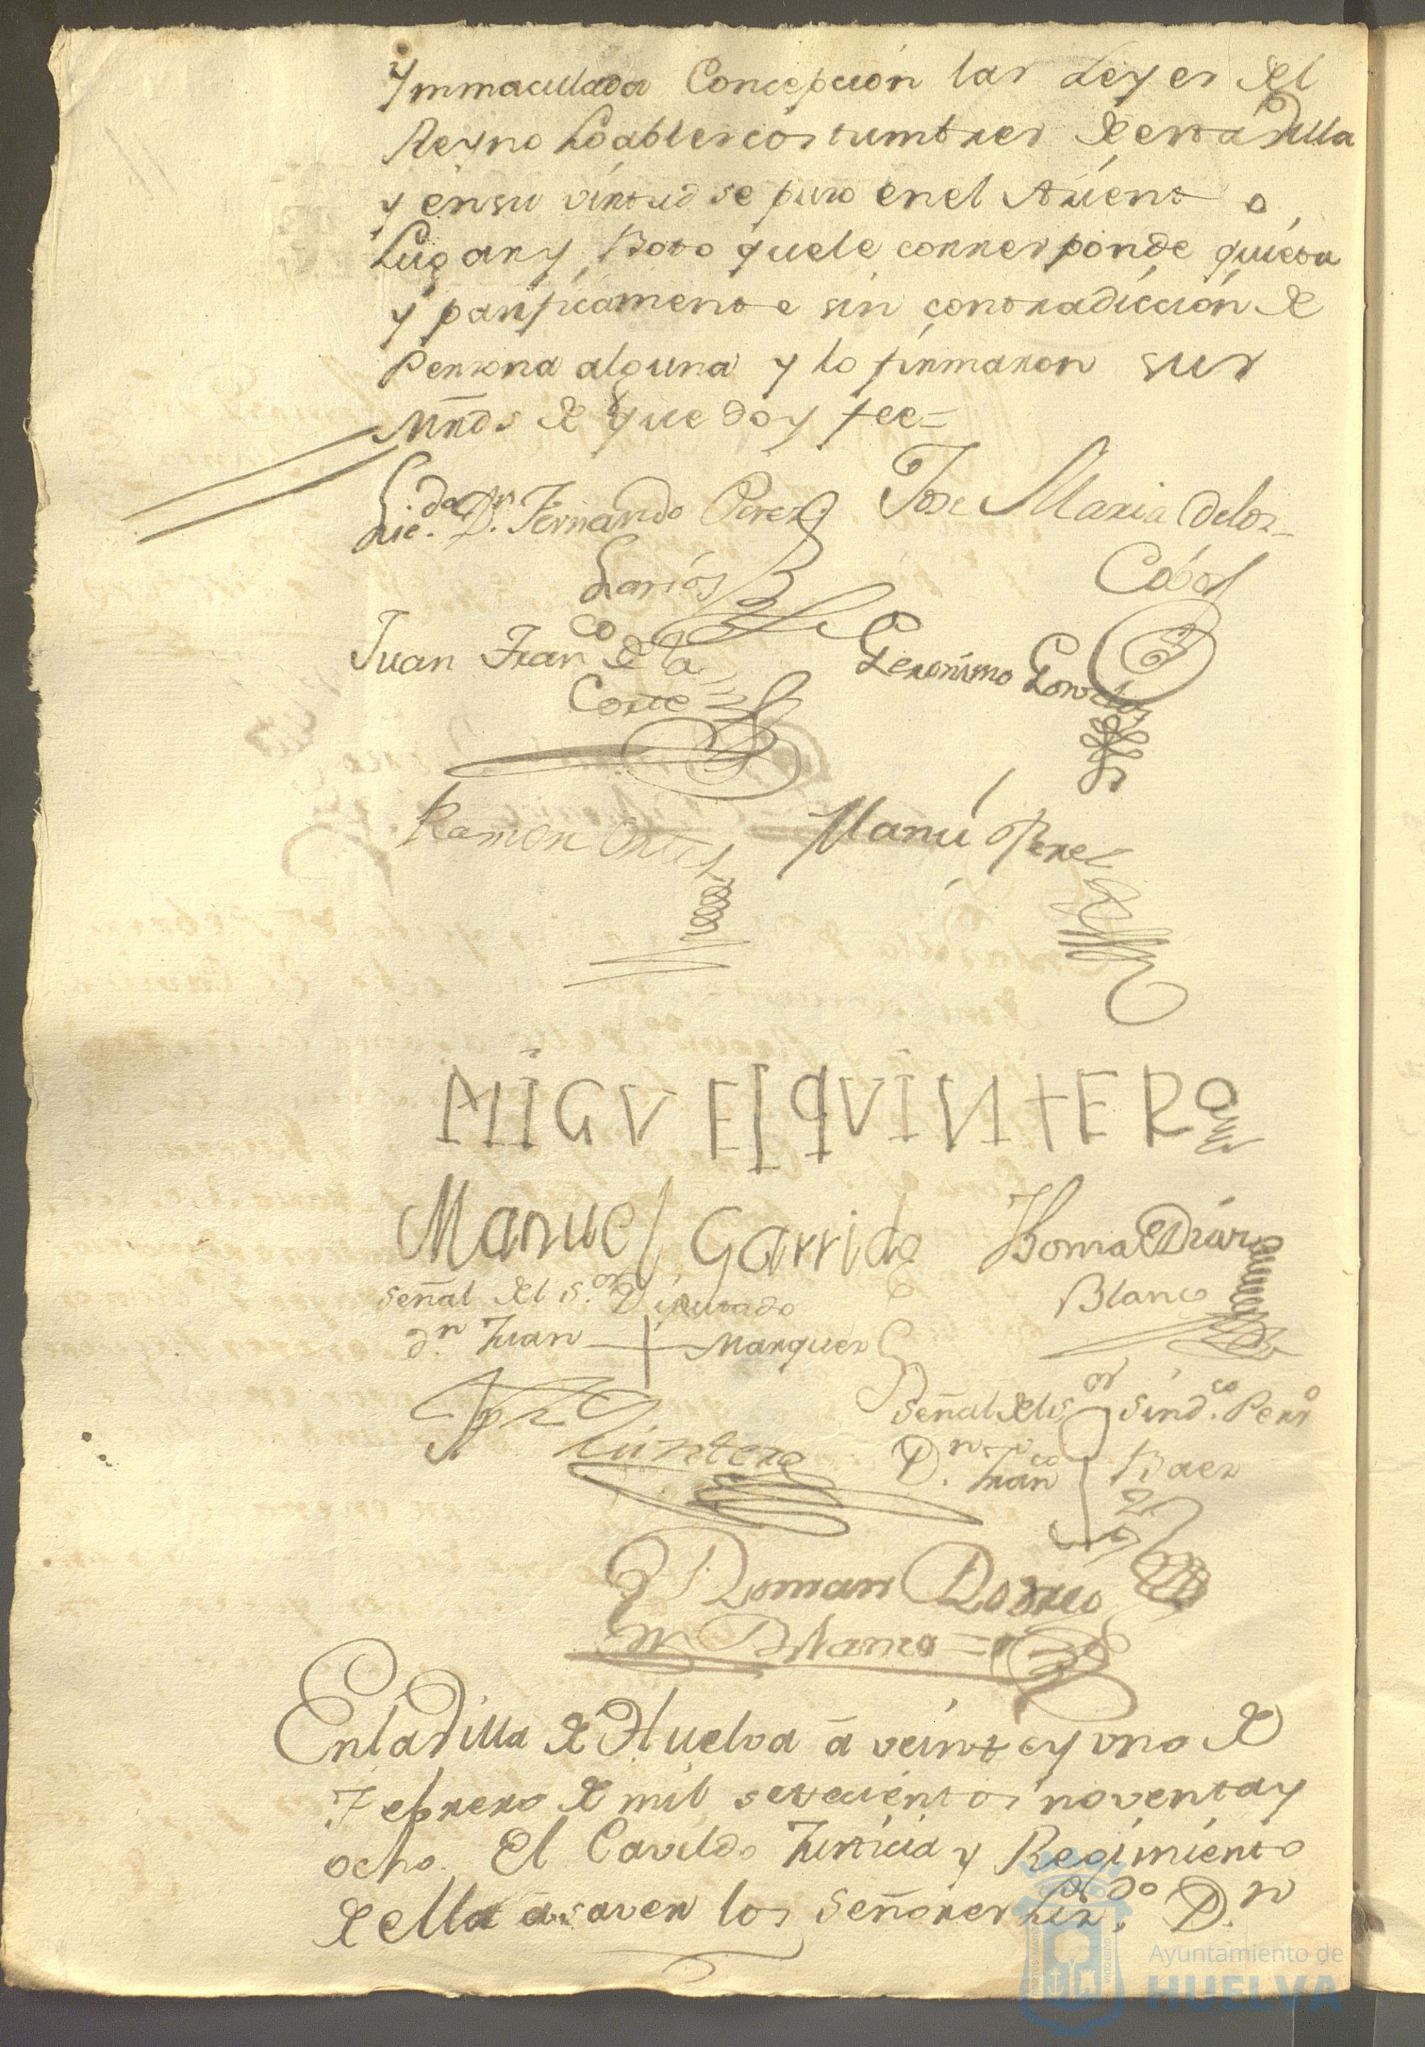 Ymmaculada Concepcion las Leyes del
Reyno Loables costumbres de esta Villa
y en su virtud se puso en el Asiento
Lugar y Boto que le corresponde quieta
y pasificamente sin contradiccion de
Persona alguna y lo firmaron sus
Mrds de que doy fee=
Licdo Dn Fernando Perez Jose Maria delos
Larios Cobos
Juan Franco de la Geronimo
Corte
Ramon Ortiz Manu Perez
MIGVEl qVINtERo
Manuel Garrido Thomas Diaz
Blanco
señal del sor Diputado
dn Juan + Marquez
señal del sor sindco Perso
Quintero
Dn Franco Baez
Roman
Blanco
En la Villa de Huelva a veinte y uno de
Febrero de mil setecientos noventa y
ocho. El Cavildo Justicia y Regimiento
de ella a saver los señores Licdo Dn
Ayuntamiento de
HUELVA